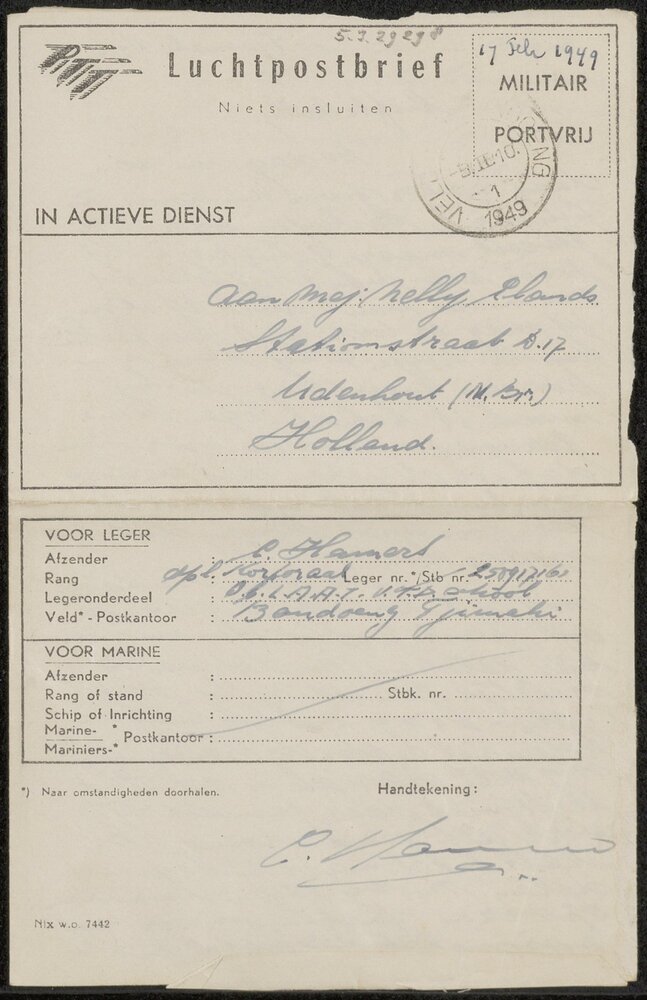 5.3.2929 8
PTT Luchtpostbrief
Niets insluiten
17 Feb 1949
MILITAIR
PORTVRIJ
VEL NG
-8.II.10.
1
1949
IN ACTIEVE DIENST
Aan Mej. Nelly Elands
Stationstraat D.17
Udenhout (N.Br.)
Holland.
VOOR LEGER
Afzender : C. Hamers
Rang : dpl. Korporaal Leger nr.*/Stb nr.
Legeronderdeel : School
Veld* - Postkantoor : Bandoeng Tjimahi
VOOR MARINE
Afzender :
Rang of stand : Stbk. nr.
Schip of Inrichting :
Marine- *
Postkantoor :
Mariniers-*
*) Naar omstandigheden doorhalen.
Handtekening:
C. Hamers
Nix w.o. 7442